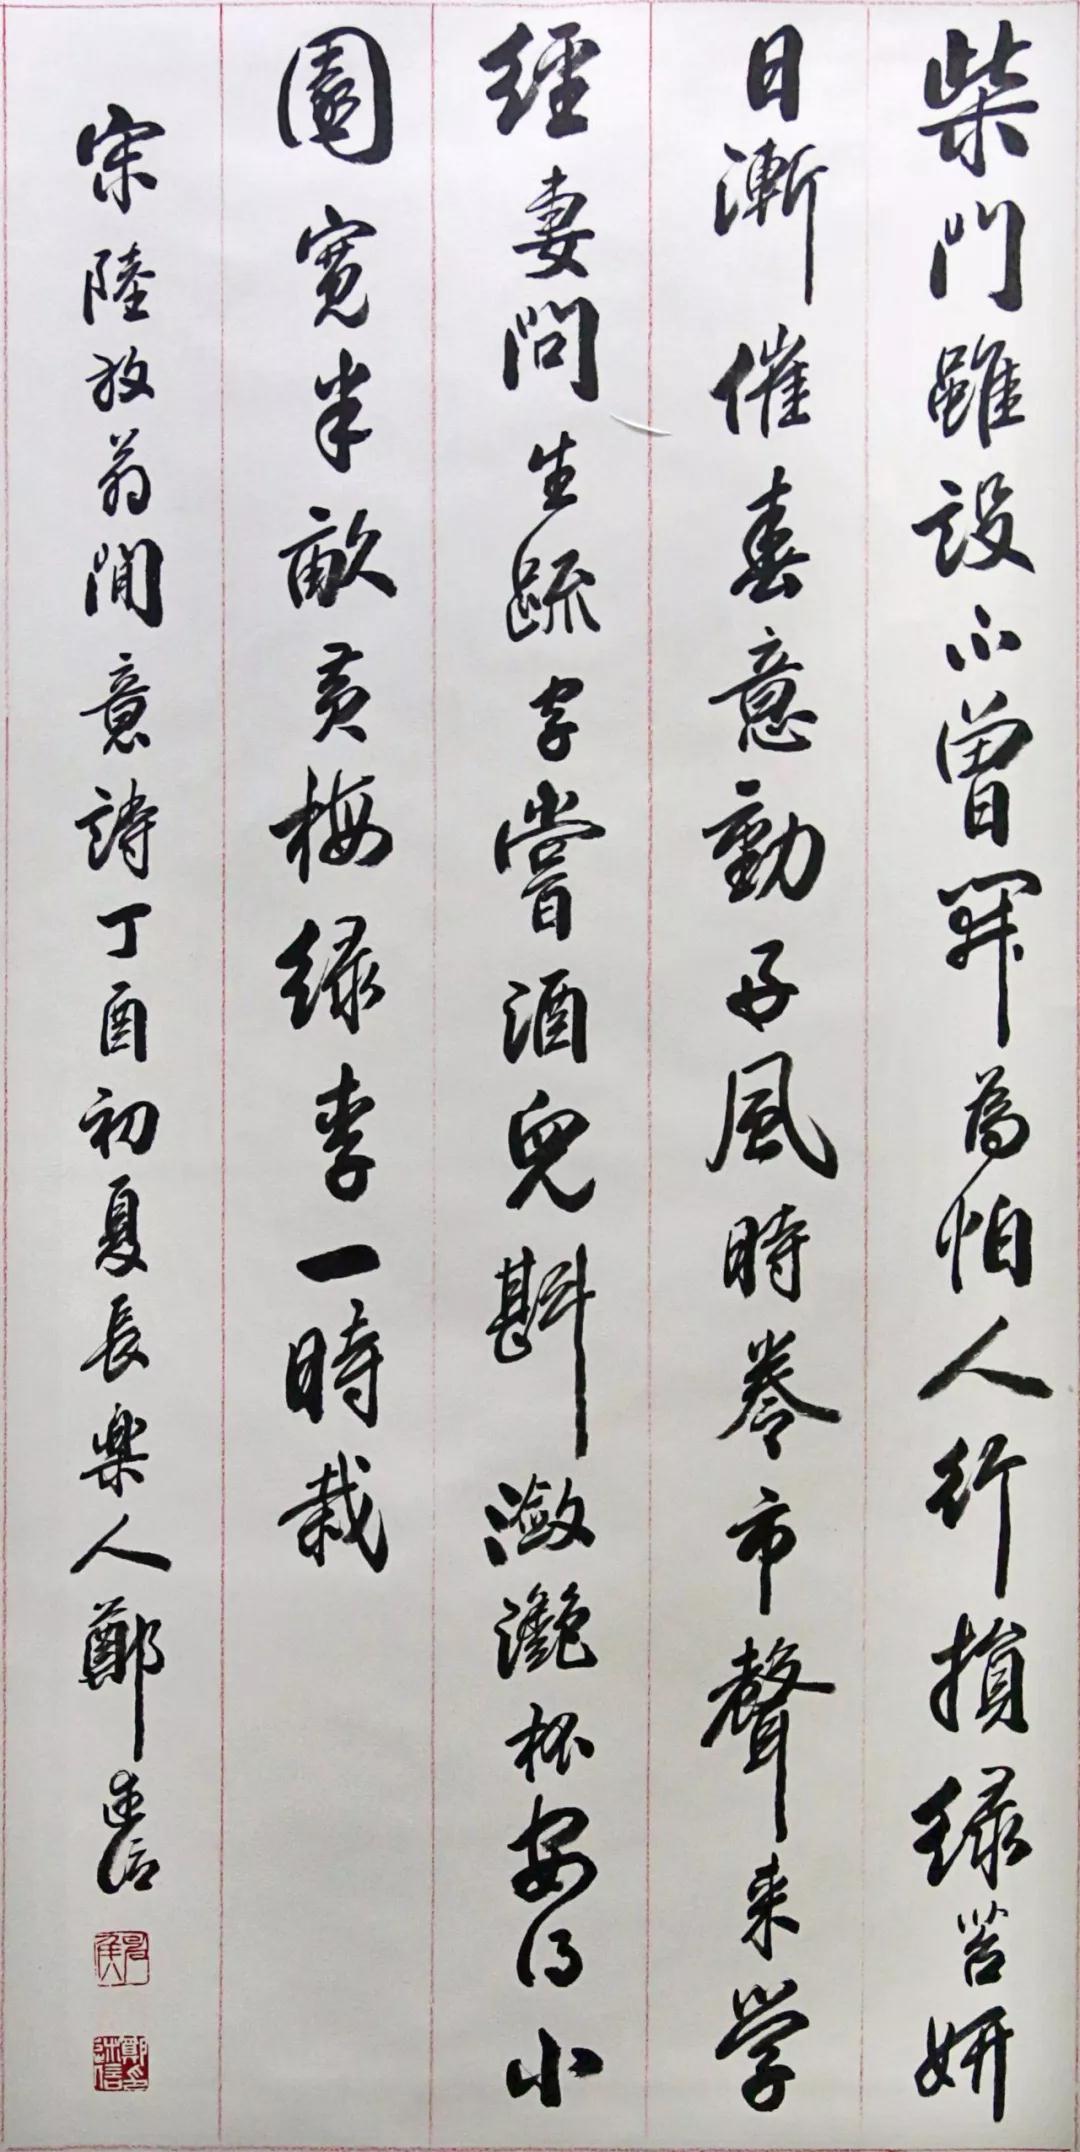 柴門雖設不曾開為怕人行損綠苔妍
日漸催春意動好風時卷市聲来学
經妻問生疏字嘗酒兒斟瀲灩杯安得小
園寬半畝黄梅綠李一時栽
宋陸放翁閒意詩丁酉初夏長樂人鄭信